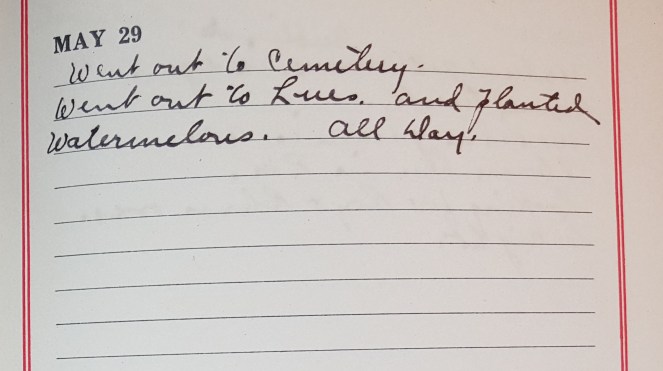 MAY 29
Went out to Cemetery.
Went out to Lues. and planted
Watermelons. All Day.